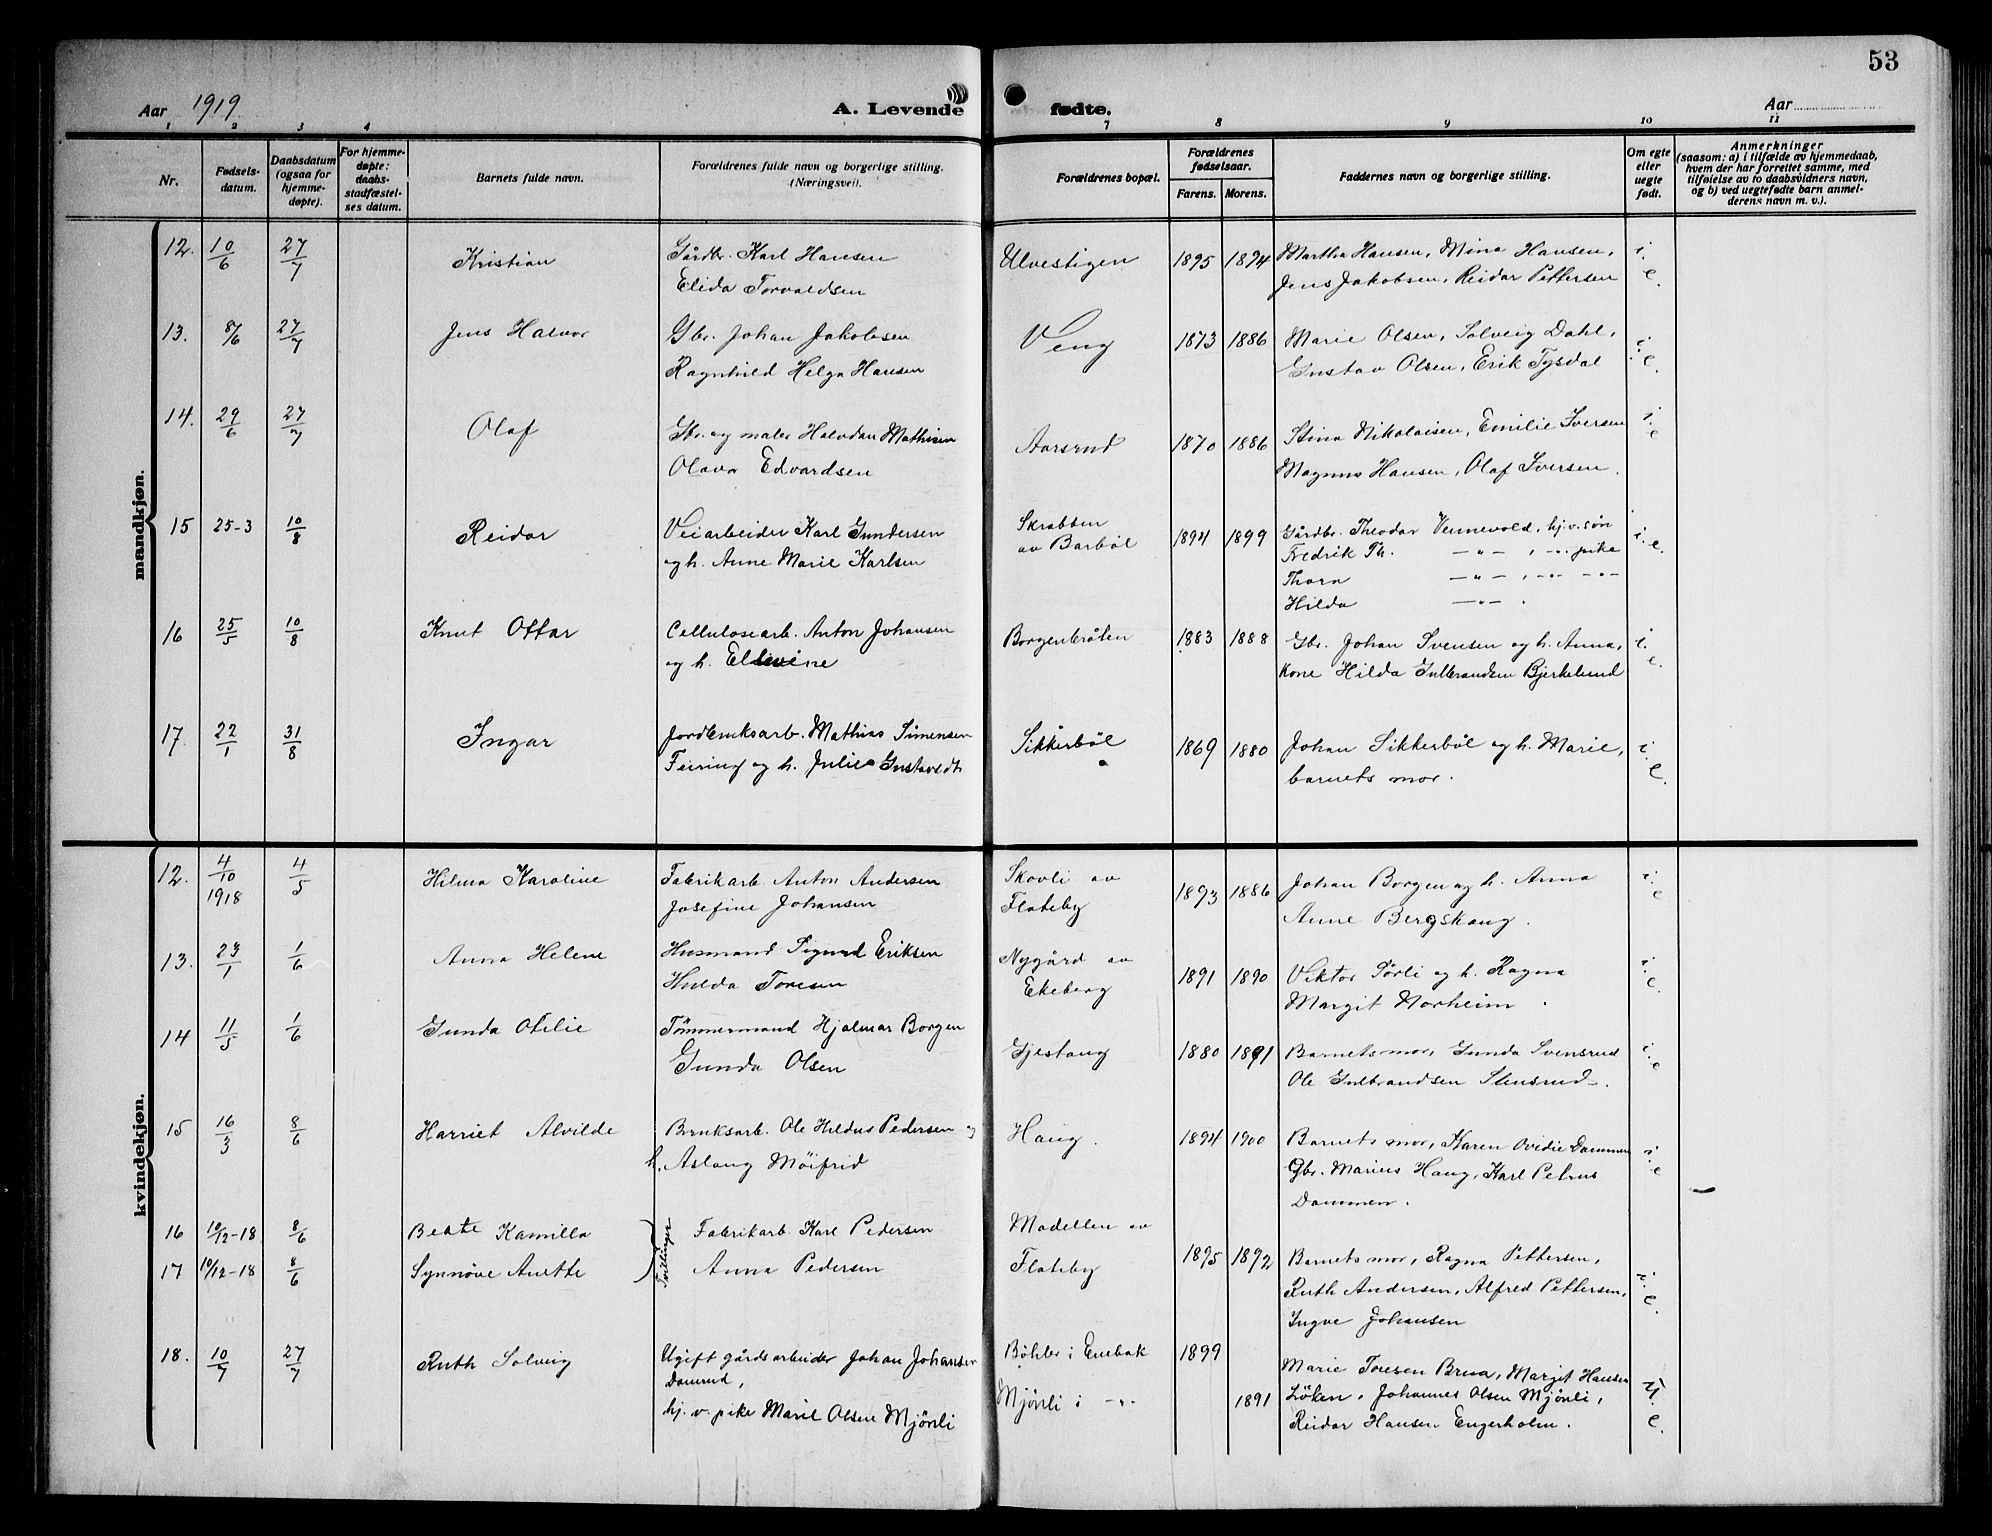 53
Aar 1919
A. Levende fødte.
Aar
1 2 3 4 7 8 9 10 11
Nr.
Fødsels-
datum.
Daabsdatum
(ogsaa for
hjemme-
døpte).
For hjemme-
døpte:
daabs-
stadfæstel-
ses datum.
Barnets fulde navn.
Forældrenes fulde navn og borgerlige stilling.
(Næringsvei).
Forældrenes bopæl.
Forældrenes
fødselsaar.
Farens. Morens.
Faddernes navn og borgerlige stilling.
Om egte
eller
uegte
født.
Anmerkninger
(saasom: a) i tilfælde av hjemmedaab,
hvem der har forrettet samme, med
tilføielse av to daabsvidners navn,
og b) ved uegtefødte barn anmel-
derens navn m. v.).
mandkjøn.
12. 10/6 27/7 Kristian Gårdbr. Karl Hansen Ulvestigen 1895 1894 Martha Hansen, Mina Hansen, i.
Elida Torvaldsen Jens Jakobsen, Reidar Pettersen e.
13. 8/6 27/7 Jens Halvor Gbr. Johan Jakobsen Veng 1873 1886 Marie Olsen, Solveig Dahl, i.
Ragnhild Helga Hansen Gustav Olsen, Erik Tysdal e.
14. 29/6 27/7 Olaf Gbr. og maler Halvdan Mathisen Aarsrud 1870 1886 Stina Nikolaisen, Emilie Iversen i.
Olava Edvardsen Magnus Hansen, Olaf Iversen. e
15 25-3 10/8 Reidar Veiarbeider Karl Gundersen Skrabben 1894 1899 Gårdbr. Theodor Vennevold, hj.v. søn i. e.
og h. Anne Marie Karlsen av Barbøl Fredrik Th. — " — , -"- pike
Thora — " — , -"- -"-
Hilda — " — .
16 25/5 10/8 Knut Ottar Cellulosearb. Anton Johansen Borgenbråten 1883 1888 Gbr. Johan Svensen og h. Anna, i.
og h. Ellevine Kone Hilda Gulbrandsen Bjerkelund e.
17. 22/1 31/8 Ingar Jordbruksarb. Mathias Simensen Sikkerbøl 1869 1880 Johan Sikkerbøl og h. Marie, i.
Feiring og h. Julie Gustavsdt. barnets mor. e.
kvindekjøn.
12. 4/10 1918 4/5 Hilma Karoline Fabrikarb. Anton Andersen Skovli av 1893 1886 Johan Borgen og h. Anna i.
Josefine Johansen Flateby Anne Bergskaug. e
13. 23/1 1/6 Anna Helene Husmand Sigurd Eriksen Nygård av 1891 1890 Viktor Sörli og h. Ragna i.
Hulda Toresen Ekeberg Margit Norheim. e.
14 11/5 1/6 Gunda Otilie Tömmermand Hjalmar Borgen Gjestang 1880 1891 Barnets mor, Gunda Svensrud i.
Gunda Olsen Ole Gulbrandsen Stensrud. e
15 16/3 8/6 Harriet Alvilde Bruksarb. Ole Hildus Pedersen og Haug. 1894 1900 Barnets mor, Karen Ovidie Dammen i.
h. Aslaug Möifrid Gbr. Marius Haug, Karl Petrus e
Dammen.
16 10/12-18 8/6 Beate Kamilla Tvillinger Fabrikarb. Karl Pedersen Modellen av
17 10/12-18 8/6 Synnöve Anette Anna Pedersen Flateby 1895 1892 Barnets mor, Ragna Pettersen,
Ruth Andersen, Alfred Pettersen, i.
Ingve Johansen e.
18. 10/7 27/7 Ruth Solveig Ugift gårdsarbeider Johan Johansen Böhler i Enebak 1899
Damrud, Marie Toresen Brua, Margit Hansen
hj. v. pike Marie Olsen Mjönli Mjönli i -"- 1891 Löken, Johannes Olsen Mjönli, u.
Reidar Hansen Engerholm. e.